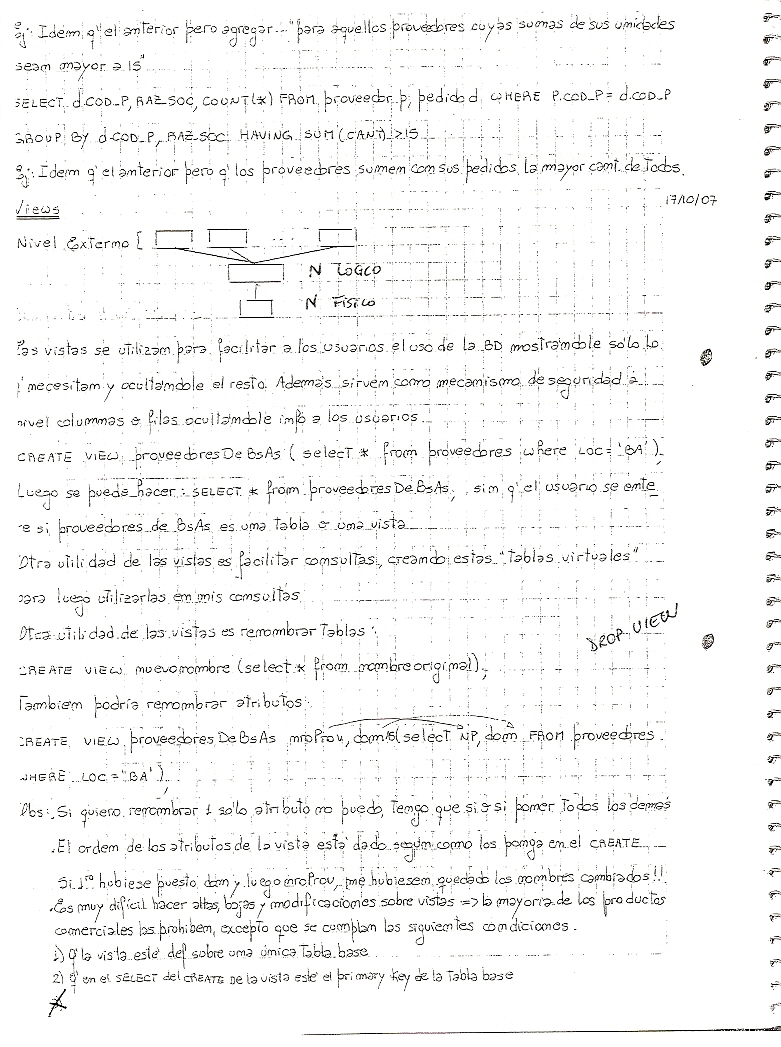 Ej: Idem q' el anterior pero agregar... "para aquellos proveedores cuyas sumas de sus unidades
sean mayor a 15"
SELECT d.COD_P, RAZ_SOC, COUNT(*) FROM proveedor p, pedido d WHERE P.COD_P = d.COD_P
GROUP BY d.COD_P, RAZ_SOC HAVING SUM(CANT) > 15
Ej: Idem q' el anterior pero q' los proveedores sumen con sus pedidos la mayor cant. de Todos.
17/10/07
Views
Nivel Externo [ ...
N LOGICO
N FÍSICO
Las vistas se utilizan para facilitar a los usuarios el uso de la BD mostrándole sólo lo
q' necesitan y ocultándole el resto. Además sirven como mecanismo de seguridad a
nivel columnas o filas ocultándole info a los usuarios.
CREATE VIEW proveedoresDeBsAs (select * from proveedores where LOC='BA')
Luego se puede hacer: SELECT * from proveedoresDeBsAs, sin q' el usuario se ente
re si proveedores de BsAs es una tabla o una vista
Otra utilidad de las vistas es facilitar consultas, creando estas "tablas virtuales"
para luego utilizarlas en mis consultas
Otra utilidad de las vistas es renombrar Tablas:
DROP VIEW
CREATE VIEW nuevonombre (select * from nombreoriginal);
Tambien podría renombrar atributos:
CREATE VIEW proveedoresDeBsAs nroProv, dom (select NP, dom FROM proveedores
WHERE LOC='BA')
Obs: Si quiero renombrar 1 solo atributo no puedo, Tengo que si o si poner Todos los demás
.El orden de los atributos de la vista está dado según como los ponga en el CREATE
Si 1ro hubiese puesto dom y luego nroProv, me hubiesen quedado los nombres cambiados!!
.Es muy difícil hacer altas, bajas y modificaciones sobre vistas => la mayoría de los productos
comerciales los prohiben, excepto que se cumplan las siguientes condiciones.
1) Q' la vista esté def sobre una única Tabla base
2) Q' en el SELECT del CREATE DE la vista esté el primary Key de la Tabla base